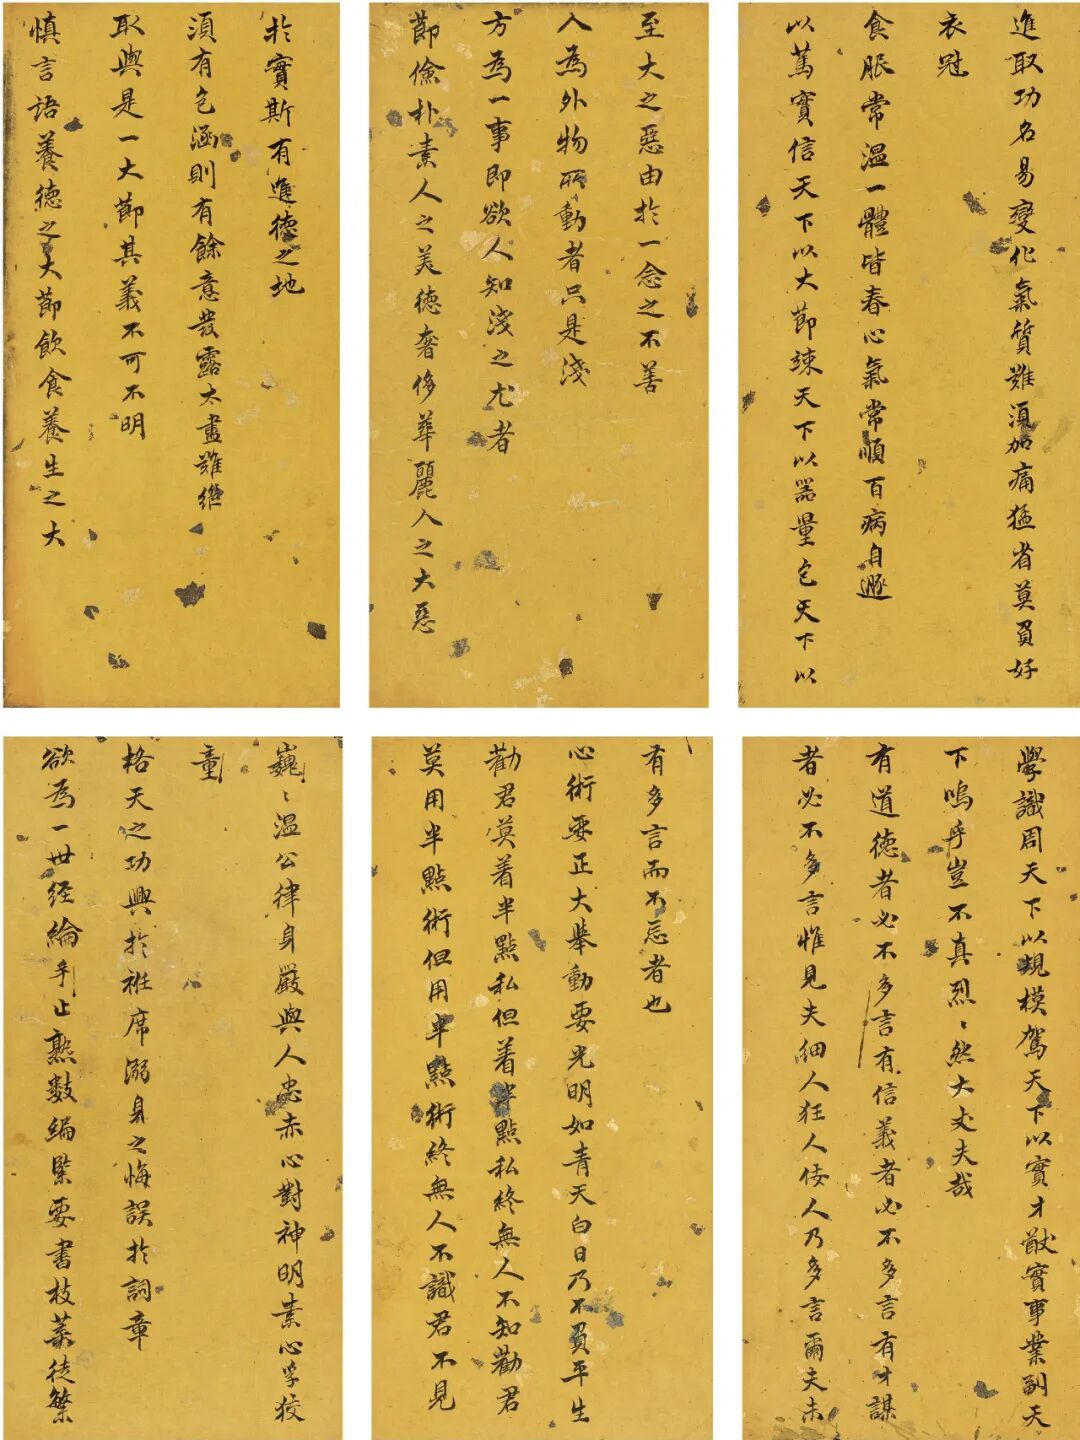 進取功名易變化氣質難須加痛猛省莫負好
衣冠
食服常溫一體皆春心氣常順百病自遯
以篤實信天下以大節竦天下以器量包天下以
至大之惡由於一念之不善
人為外物所動者只是淺
方為一事即欲人知淺之尤者
節儉朴素人之美德奢侈華麗人之大惡
於實斯有進德之地
須有包涵則有餘意發露太盡難繼
取與是一大節其義不可不明
慎言語養德之大節飲食養生之大
學識周天下以規模駕天下以實才猷實事業副天
下嗚乎豈不真烈〻然大丈夫哉
有道德者必不多言有信義者必不多言有才謀
者必不多言惟見夫細人狂人佞人乃多言爾夫未
有多言而不忘者也
心術要正大舉動要光明如青天白日乃不負平生
勸君莫着半點私但着半點私終無人不知勸君
莫用半點術但用半點術終無人不識君不見
巍〻溫公律身嚴與人忠赤心對神明素心孚狡
童
格天之功興於袵席溺身之悔誤於詞章
欲為一世經綸手止熟數編緊要書枝葉徒繁